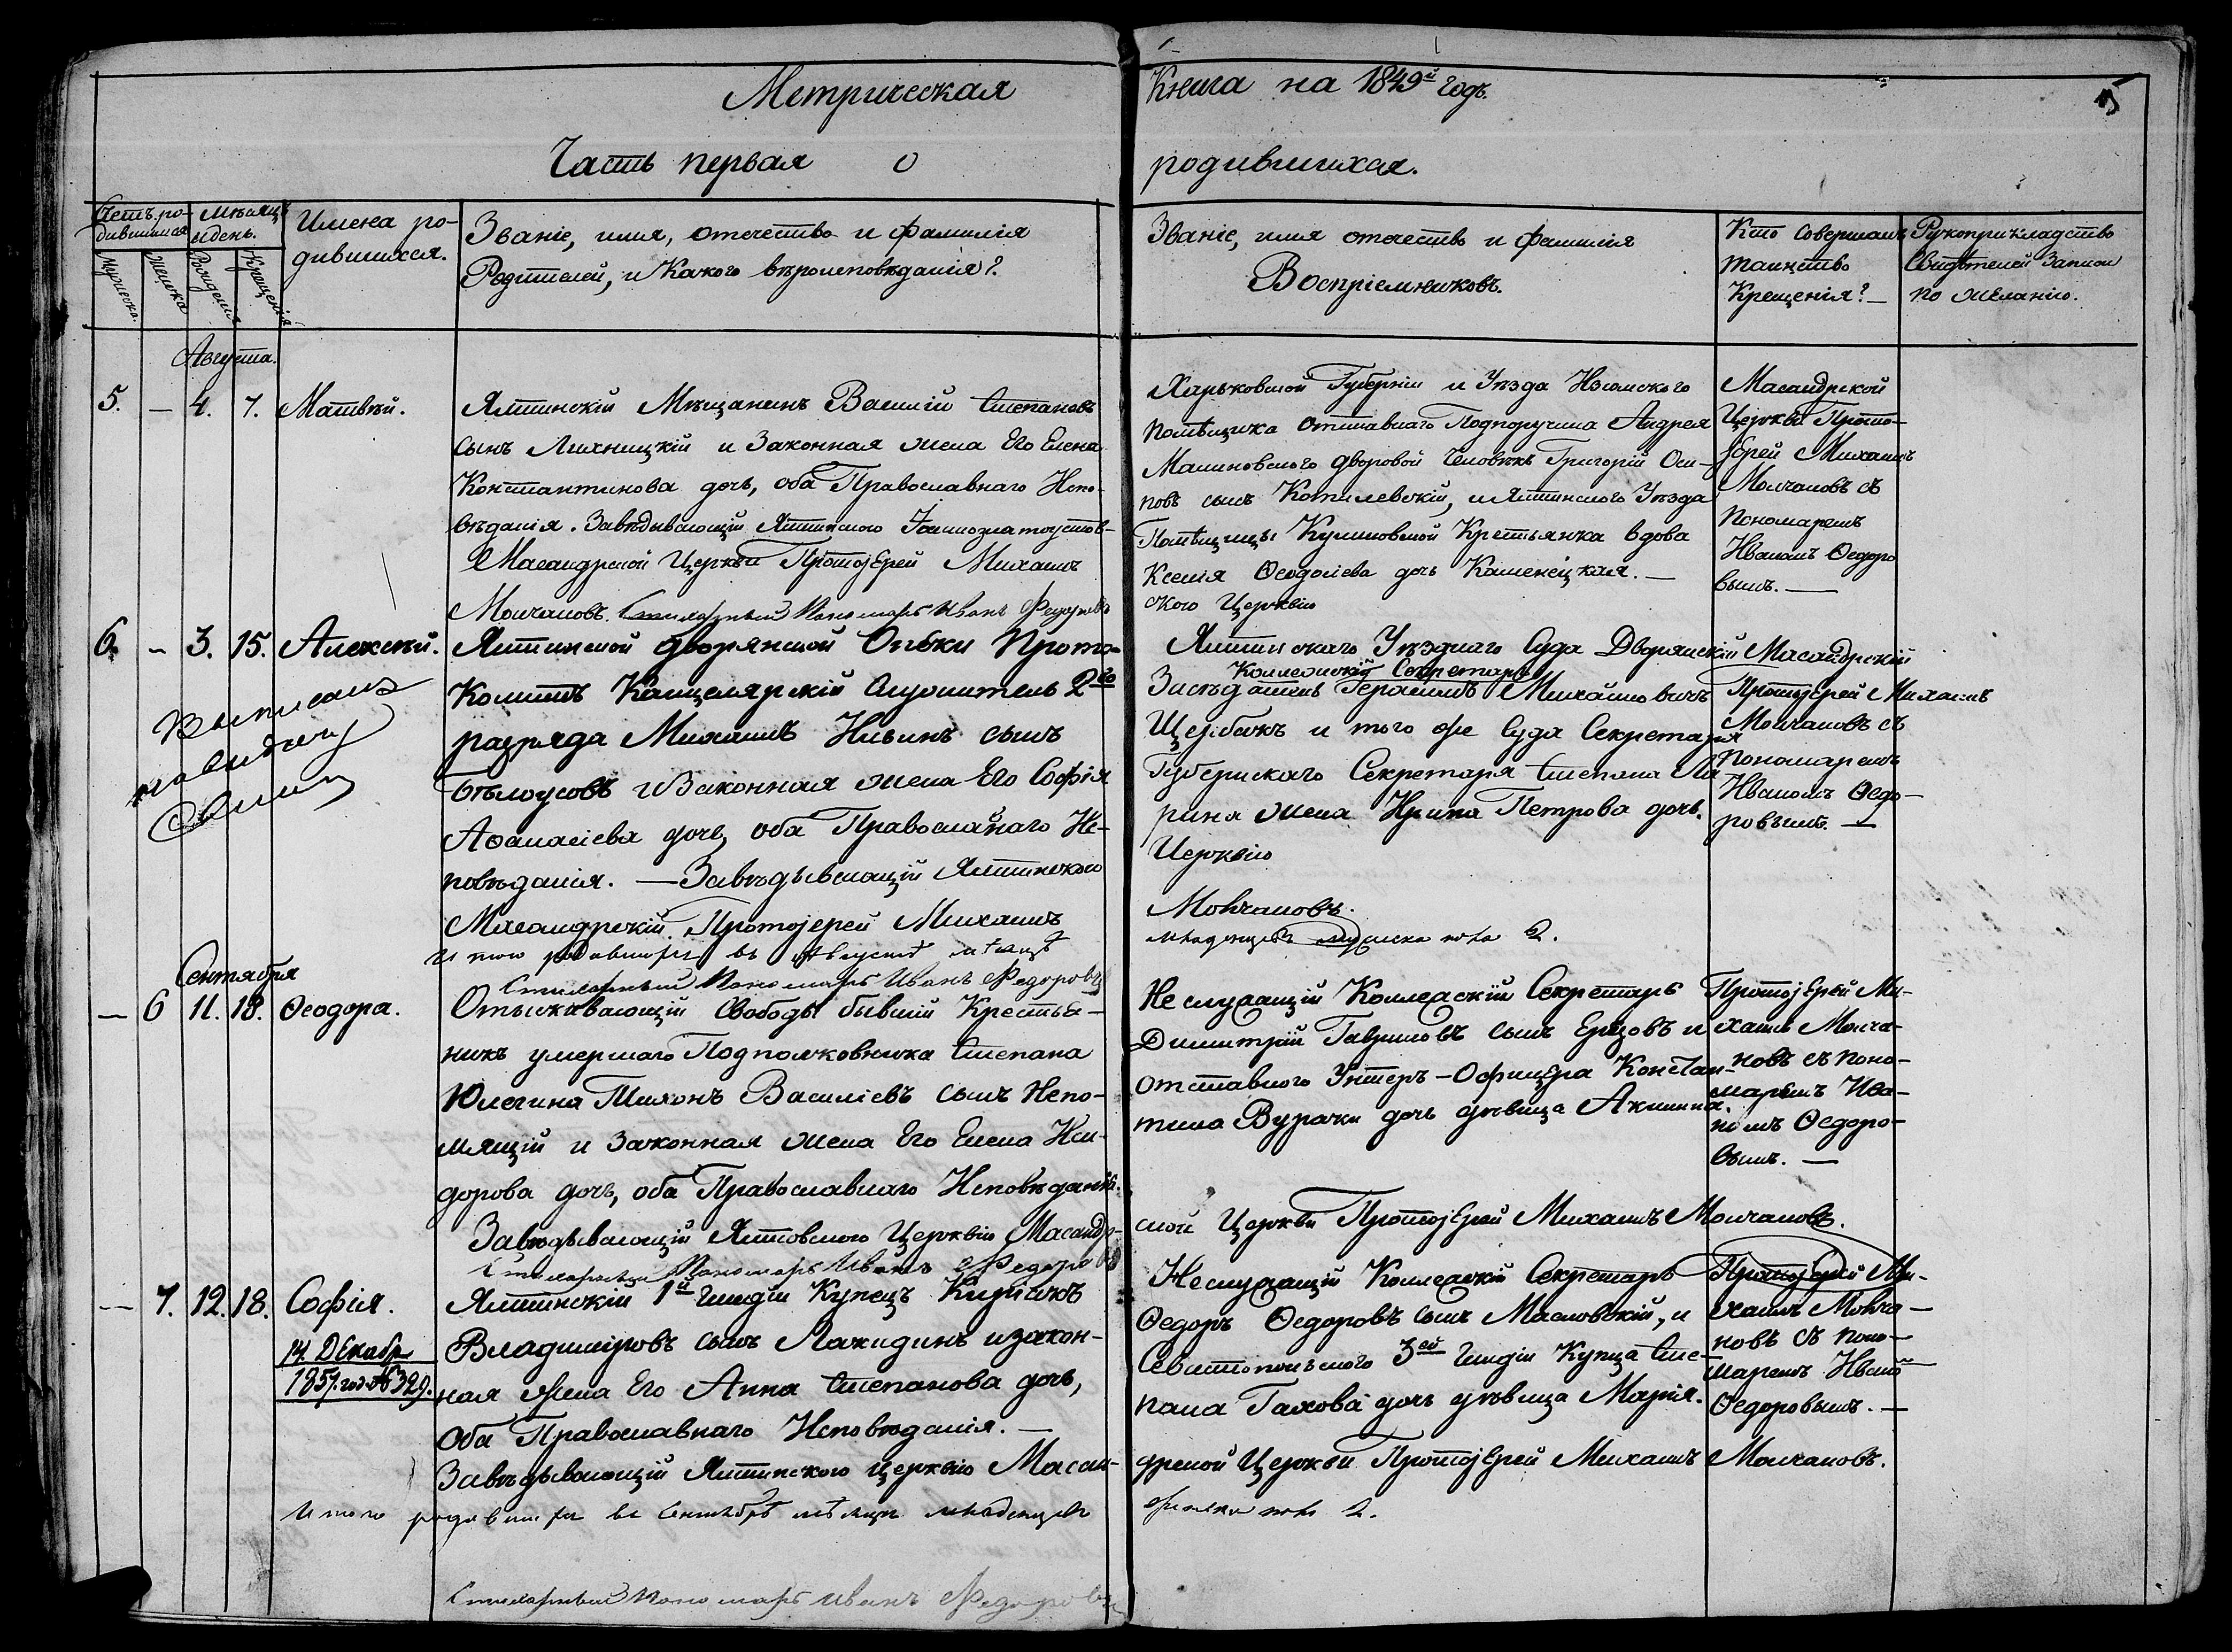 Метрическая Книга на 1849й годъ.
Часть первая о родившихся.
Счетъ ро-
дившихся
Мѣсяцъ
и день.
Имена ро-
дившихся.
Званіе, имя, отечество и фамилія
Родителей, и Какого вѣроисповѣданія?
Званіе, имя отечество и фамилія
Воспріемниковъ.
Кто совершалъ
таинство
Крещенія? —
Рукоприкладство
Свидѣтелей Записи
по желанію.
Мужеска.
Женска
Рожденія
Крещенія
Августа.
5. — 4. 7. Матвѣй.
Ялтинскій Мѣщанинъ Василій Степановъ
сынъ Лихницкій и Законная жена Его Елена
Константинова дочь, оба Православнаго Испо-
вѣданія. Завѣдывающій Ялтинскою Іоаннозлатоустов-
Масандрской Церкви Протоjерей Михаилъ
Молчановъ. Стихарный Пономарь Иванъ Федоровъ
Харьковской Губерніи и Уѣзда Изюмского
помѣщика отставнаго Подпоручика Андрея
Малиновского дворовой человѣкъ Григорій Оси-
повъ сынъ Котилевскій, и Ялтинского Уѣзда
Помѣщицы Куликовской Крестьянка вдова
Ксенія Ѳеодосіева дочь Каменецкая. —
скою Церквію
Масандрской
Церкви Прото-
jерей Михаилъ
Молчановъ съ
Пономаремъ
Иваномъ Ѳедоро
вымъ. —
6. — 3. 15. Алексѣй.
Ялтинской дворянской Опѣки Прото-
Колистъ Канцелярскій Служитель 2го
разряда Михаилъ Ильинъ сынъ
Бѣлоусовъ и Законная жена Его Софія
Аѳанасіева дочь, оба Православнаго Ис-
повѣданія. — Завѣдывающій Ялтинскою
Масандрскій Протоjерей Михаилъ
Итого родившихся въ Августѣ мѣсяцѣ
Стихарный Пономарь Иванъ Федоровъ
Ялтинскаго Уѣзднаго Суда Дворянскій
Коллежскій Секретарь
Засѣдатель Герасимъ Михайловичъ
Щербакъ и того же Суда Секретаря
Губернскаго Секретаря Степана Ла
рина жена Ирина Петрова дочь.
Церквію
Молчановъ.
младенцевъ мужеска пола 2.
Масандрскій
Протоjерей Михаилъ
Молчановъ съ
пономаремъ
Иваномъ Ѳедо-
ровымъ. —
Сентября
— 6 11. 18. Ѳеодора.
Отыскивающій Свободы бывшій Крестья-
нинъ умершаго Подполковника Степана
Юлегина Тихонъ Василіевъ сынъ Непо-
мящій и Законная жена Его Елена Иси-
дорова дочь, оба Православнаго Исповѣданія.
Завѣдывающій Ялтовскою Церквію Масандр-
Стихарный Пономарь Иванъ Федоровъ
Неслужащій Коллежскій Секретарь
Димитрій Гавриловъ сынъ Ерцовъ и
отставного Унтеръ-Офицера Констан-
тина Вурачи дочь дѣвица Акилина.
ской Церкви Протоjерей Михаилъ Молчановъ.
Протоjерей Ми-
хаилъ Молча-
новъ съ поно-
маремъ Ива-
номъ Ѳедоро-
вымъ. —
— 7. 12. 18. Софія.
14 Декабр
1857. год. № 329.
Ялтинскій 1й Гильдіи Купецъ Кирьякъ
Владиміровъ сынъ Лакидинъ и закон-
ная жена Его Анна Степанова дочь,
Оба Православнаго Исповѣданія. —
Завѣдывающій Ялтинскою Церквію Масан-
Итого родившихся въ Сентябрѣ мѣсяцѣ младенцевъ
Стихарный Пономарь Иванъ Федоровъ
Неслужащій Коллежскій Секретарь
Ѳедоръ Ѳедоровъ сынъ Масловскій, и
Севастопольского 3ей Гильдіи Купца Сте-
пана Галкова дочь дѣвица Марія.
дрской Церкви Протоjерей Михаилъ Молчановъ.
женска пола 2.
Протоjерей Ми-
хаилъ Молча-
новъ съ поно-
маремъ Ивано
Ѳедоровымъ. —